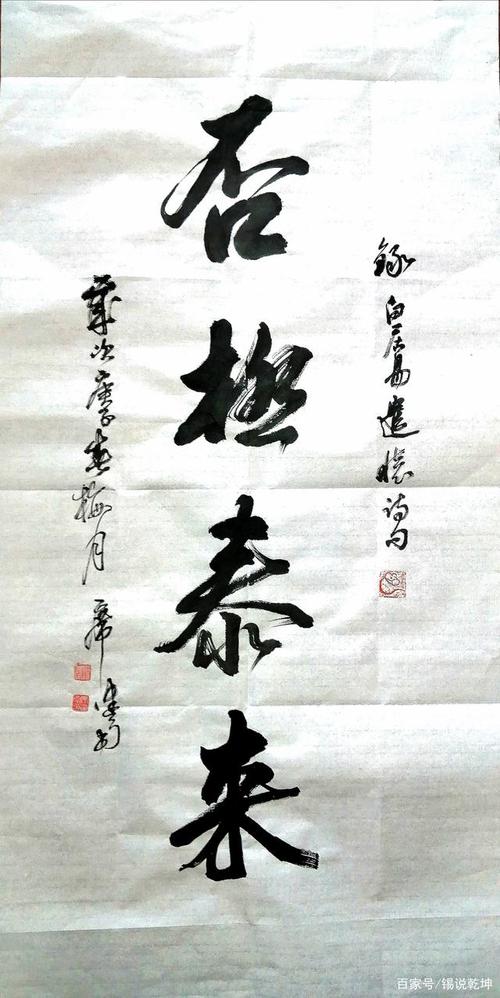 錄白居易遣懷詩句
否極泰來
歲次庚子春梅月 席
百家号/锡说乾坤